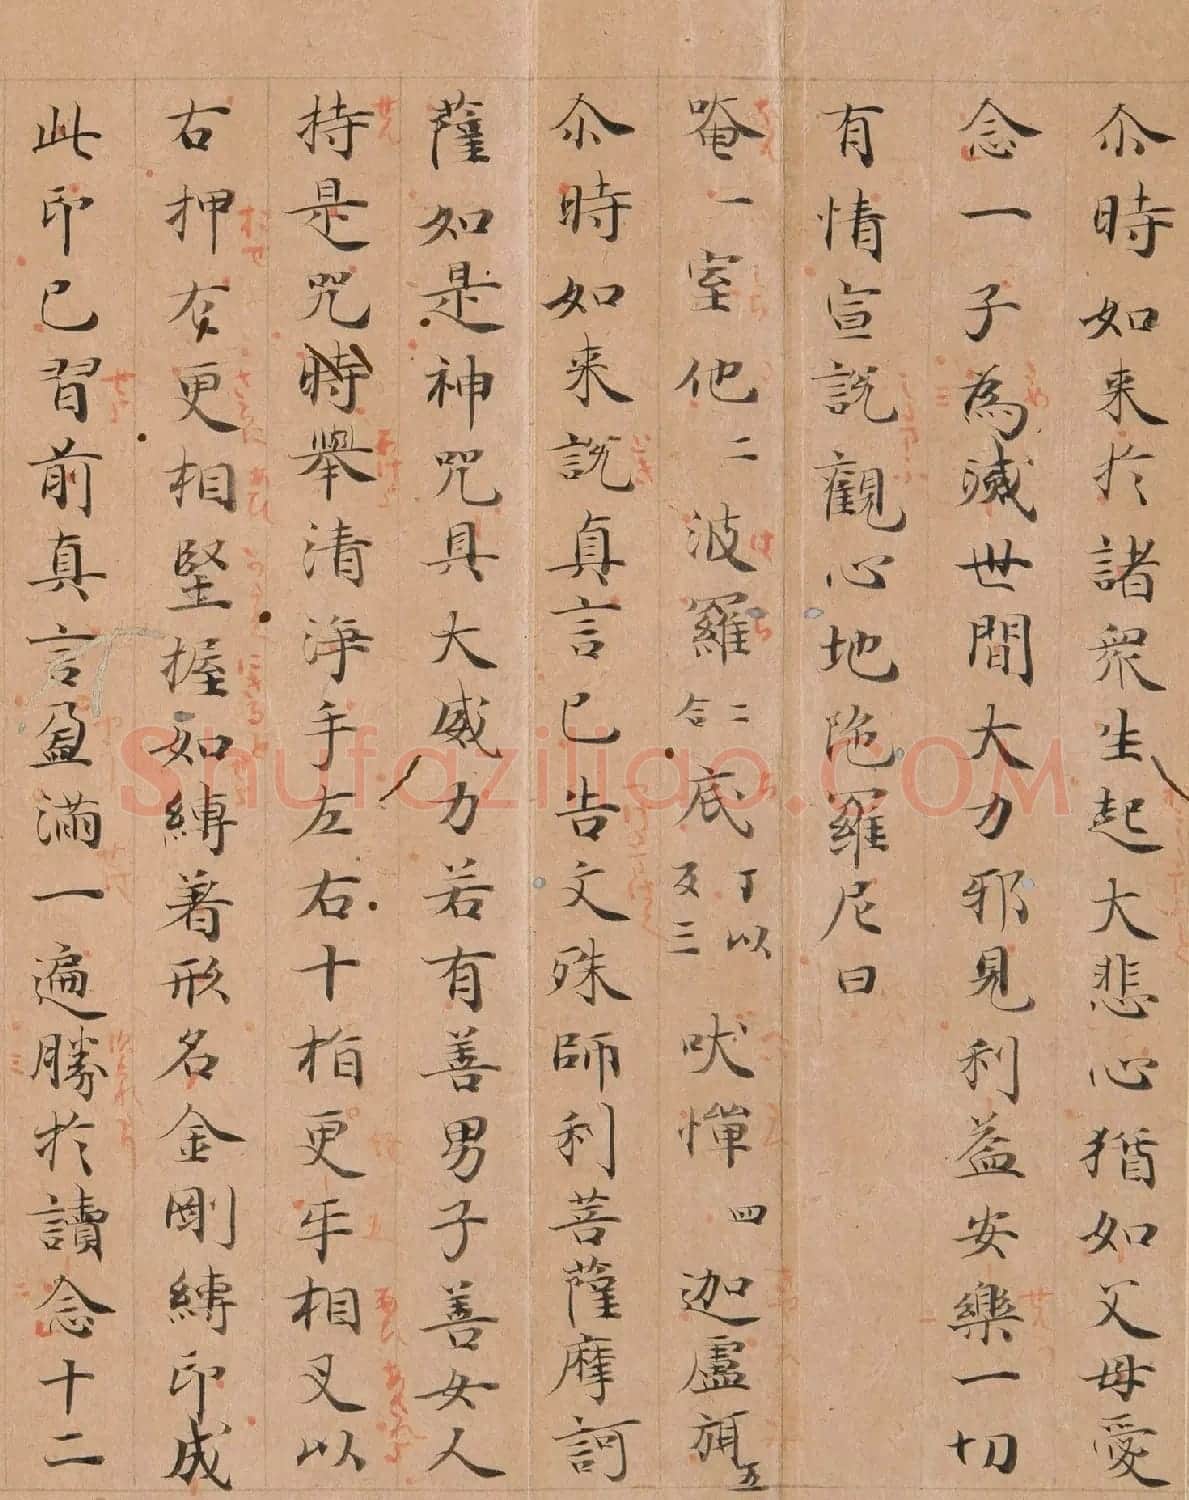 尒時如来於諸衆生起大悲心猶如父母愛
念一子為滅世間大力邪見利益安樂一切
有情宣説觀心地陁羅尼曰
唵一室他二波羅二合底丁以反三吠憚四迦盧頻五
尒時如来説真言已告文殊師利菩薩摩訶
薩如是神咒具大威力若有善男子善女人
持是咒時舉清淨手左右十指更互相叉以
右押左更相堅握如縛著形名金剛縛印成
此印已習前真言盈滿一遍勝於讀念十二
Shufaziliao.COM